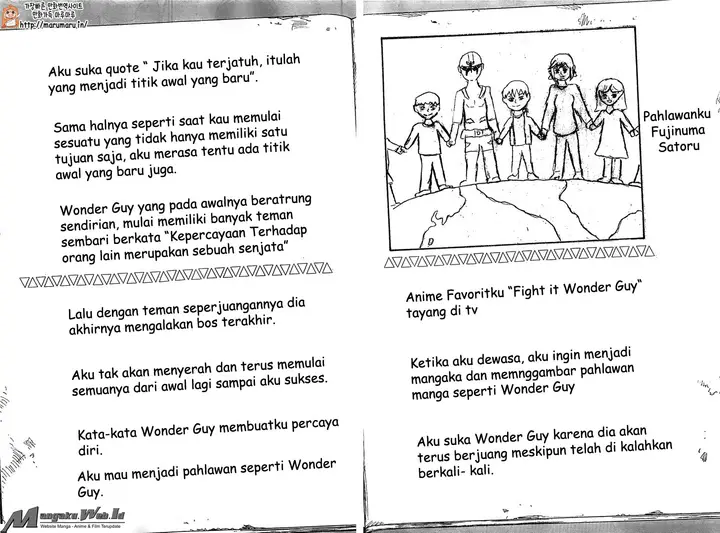 가장빠른 만화번역사이트
만화가득 마루마루
http://marumaru.in/
Pahlawanku
Fujinuma
Satoru
Anime Favoritku “Fight it Wonder Guy“
tayang di tv
Ketika aku dewasa, aku ingin menjadi
mangaka dan memnggambar pahlawan
manga seperti Wonder Guy
Aku suka Wonder Guy karena dia akan
terus berjuang meskipun telah di kalahkan
berkali- kali.
Aku suka quote “ Jika kau terjatuh, itulah
yang menjadi titik awal yang baru”.
Sama halnya seperti saat kau memulai
sesuatu yang tidak hanya memiliki satu
tujuan saja, aku merasa tentu ada titik
awal yang baru juga.
Wonder Guy yang pada awalnya beratrung
sendirian, mulai memiliki banyak teman
sembari berkata “Kepercayaan Terhadap
orang lain merupakan sebuah senjata”
Lalu dengan teman seperjuangannya dia
akhirnya mengalakan bos terakhir.
Aku tak akan menyerah dan terus memulai
semuanya dari awal lagi sampai aku sukses.
Kata-kata Wonder Guy membuatku percaya
diri.
Aku mau menjadi pahlawan seperti Wonder
Guy.
Mangaku.Web.Id
Website Manga - Anime & Film Terupdate